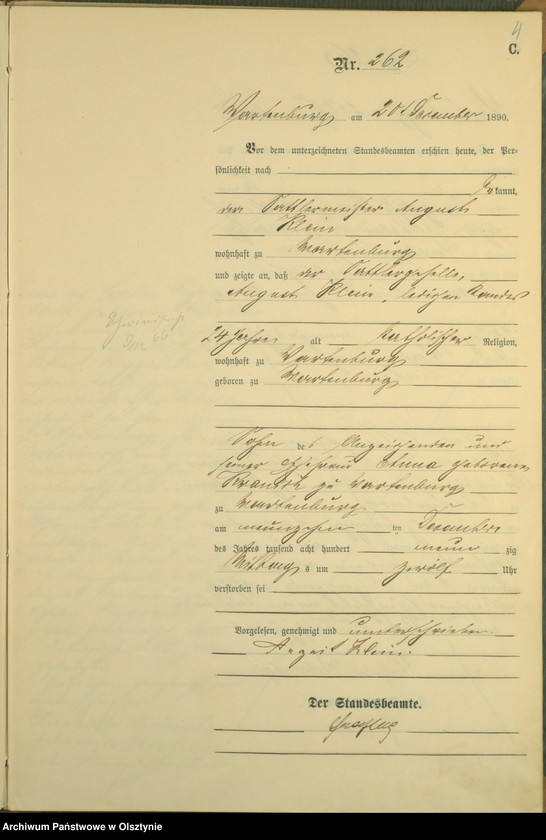 4
C.
Nr. 262
Wartenburg am 20 Dezember 1890.
Vor dem unterzeichneten Standesbeamten erschien heute, der Per-
sönlichkeit nach
bekannt,
der Sattlermeister August
Klein
wohnhaft zu Wartenburg
und zeigte an, daß der Sattlergeselle,
August Klein, ledigen Standes
24 Jahre alt katholischer Religion,
wohnhaft zu Wartenburg
geboren zu Wartenburg
Sohn des Anzeigenden und
seiner Ehefrau Anna geborene
zu Wartenburg
zu Wartenburg
am neunzehn ten Dezember
des Jahres tausend acht hundert neun zig
Mittag s um zwölf Uhr
verstorben sei
Vorgelesen, genehmigt und unterschrieben.
Klein.
Der Standesbeamte.
Archiwum Państwowe w Olsztynie